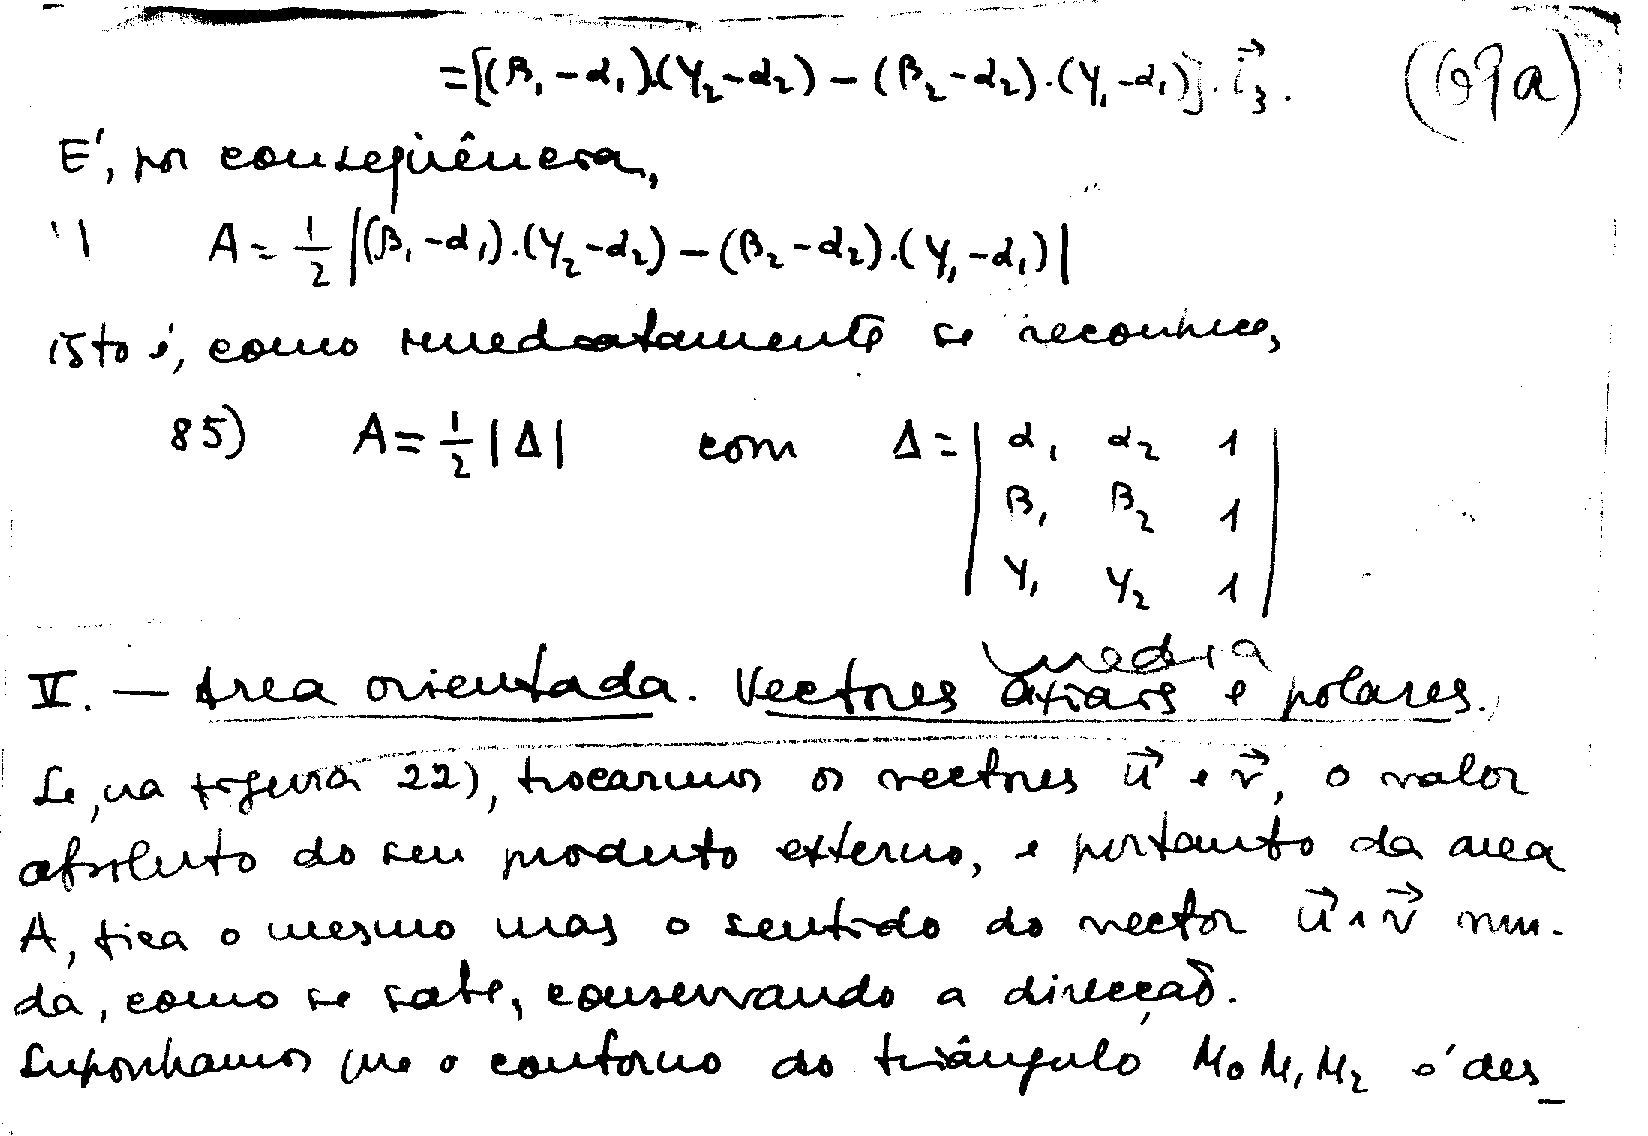 =[(β₁-α₁).(γ₂-α₂) - (β₂-α₂).(γ₁-α₁)]. i⃗₃. (69a)
E', por conseqüência,
A = 1/2 |(β₁-α₁).(γ₂-α₂) - (β₂-α₂).(γ₁-α₁)|
isto é, como imediatamente se reconhece,
85) A = 1/2 |Δ| com Δ = | α₁ α₂ 1 |
| β₁ β₂ 1 |
| γ₁ γ₂ 1 |
media
V. — Area orientada. Vectores axiais e polares.
Se, na figura 22), trocarmos os vectores u⃗ e v⃗, o valor
absoluto do seu produto externo, e portanto da area
A, fica o mesmo mas o sentido do vector u⃗ ∧ v⃗ mu-
da, como se sabe, conservando a direcção.
Suponhamos que o contorno do triângulo M₀M₁M₂ é des_